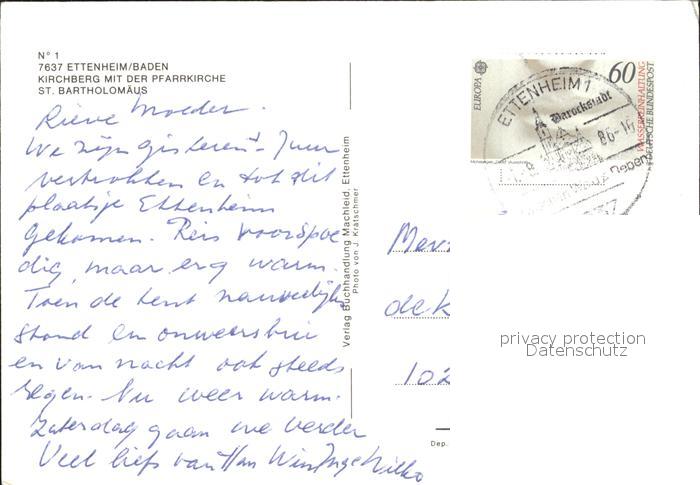 N° 1
7637 ETTENHEIM/BADEN
KIRCHBERG MIT DER PFARRKIRCHE
ST. BARTHOLOMÄUS
Lieve Moeder.
We zijn gisteren 7 uur
vertrokken en tot dit
plaatsje Ettenheim
gekomen. Reis voorspoe
dig, maar erg warm.
Toen de tent nauwelijks
stond een onweersbui
en van nacht ook steeds
regen. Nu weer warm.
Zaterdag gaan we verder
Veel liefs van Han Wim Inge Wilko
Verlag Buchhandlung Machleid, Ettenheim
Photo von J. Kratschmer
EUROPA
60
WASSERREINHALTUNG
DEUTSCHE BUNDESPOST
ETTENHEIM 1
Barockstadt
86-16
Mev
dek
102
privacy protection
Datenschutz
Dep.